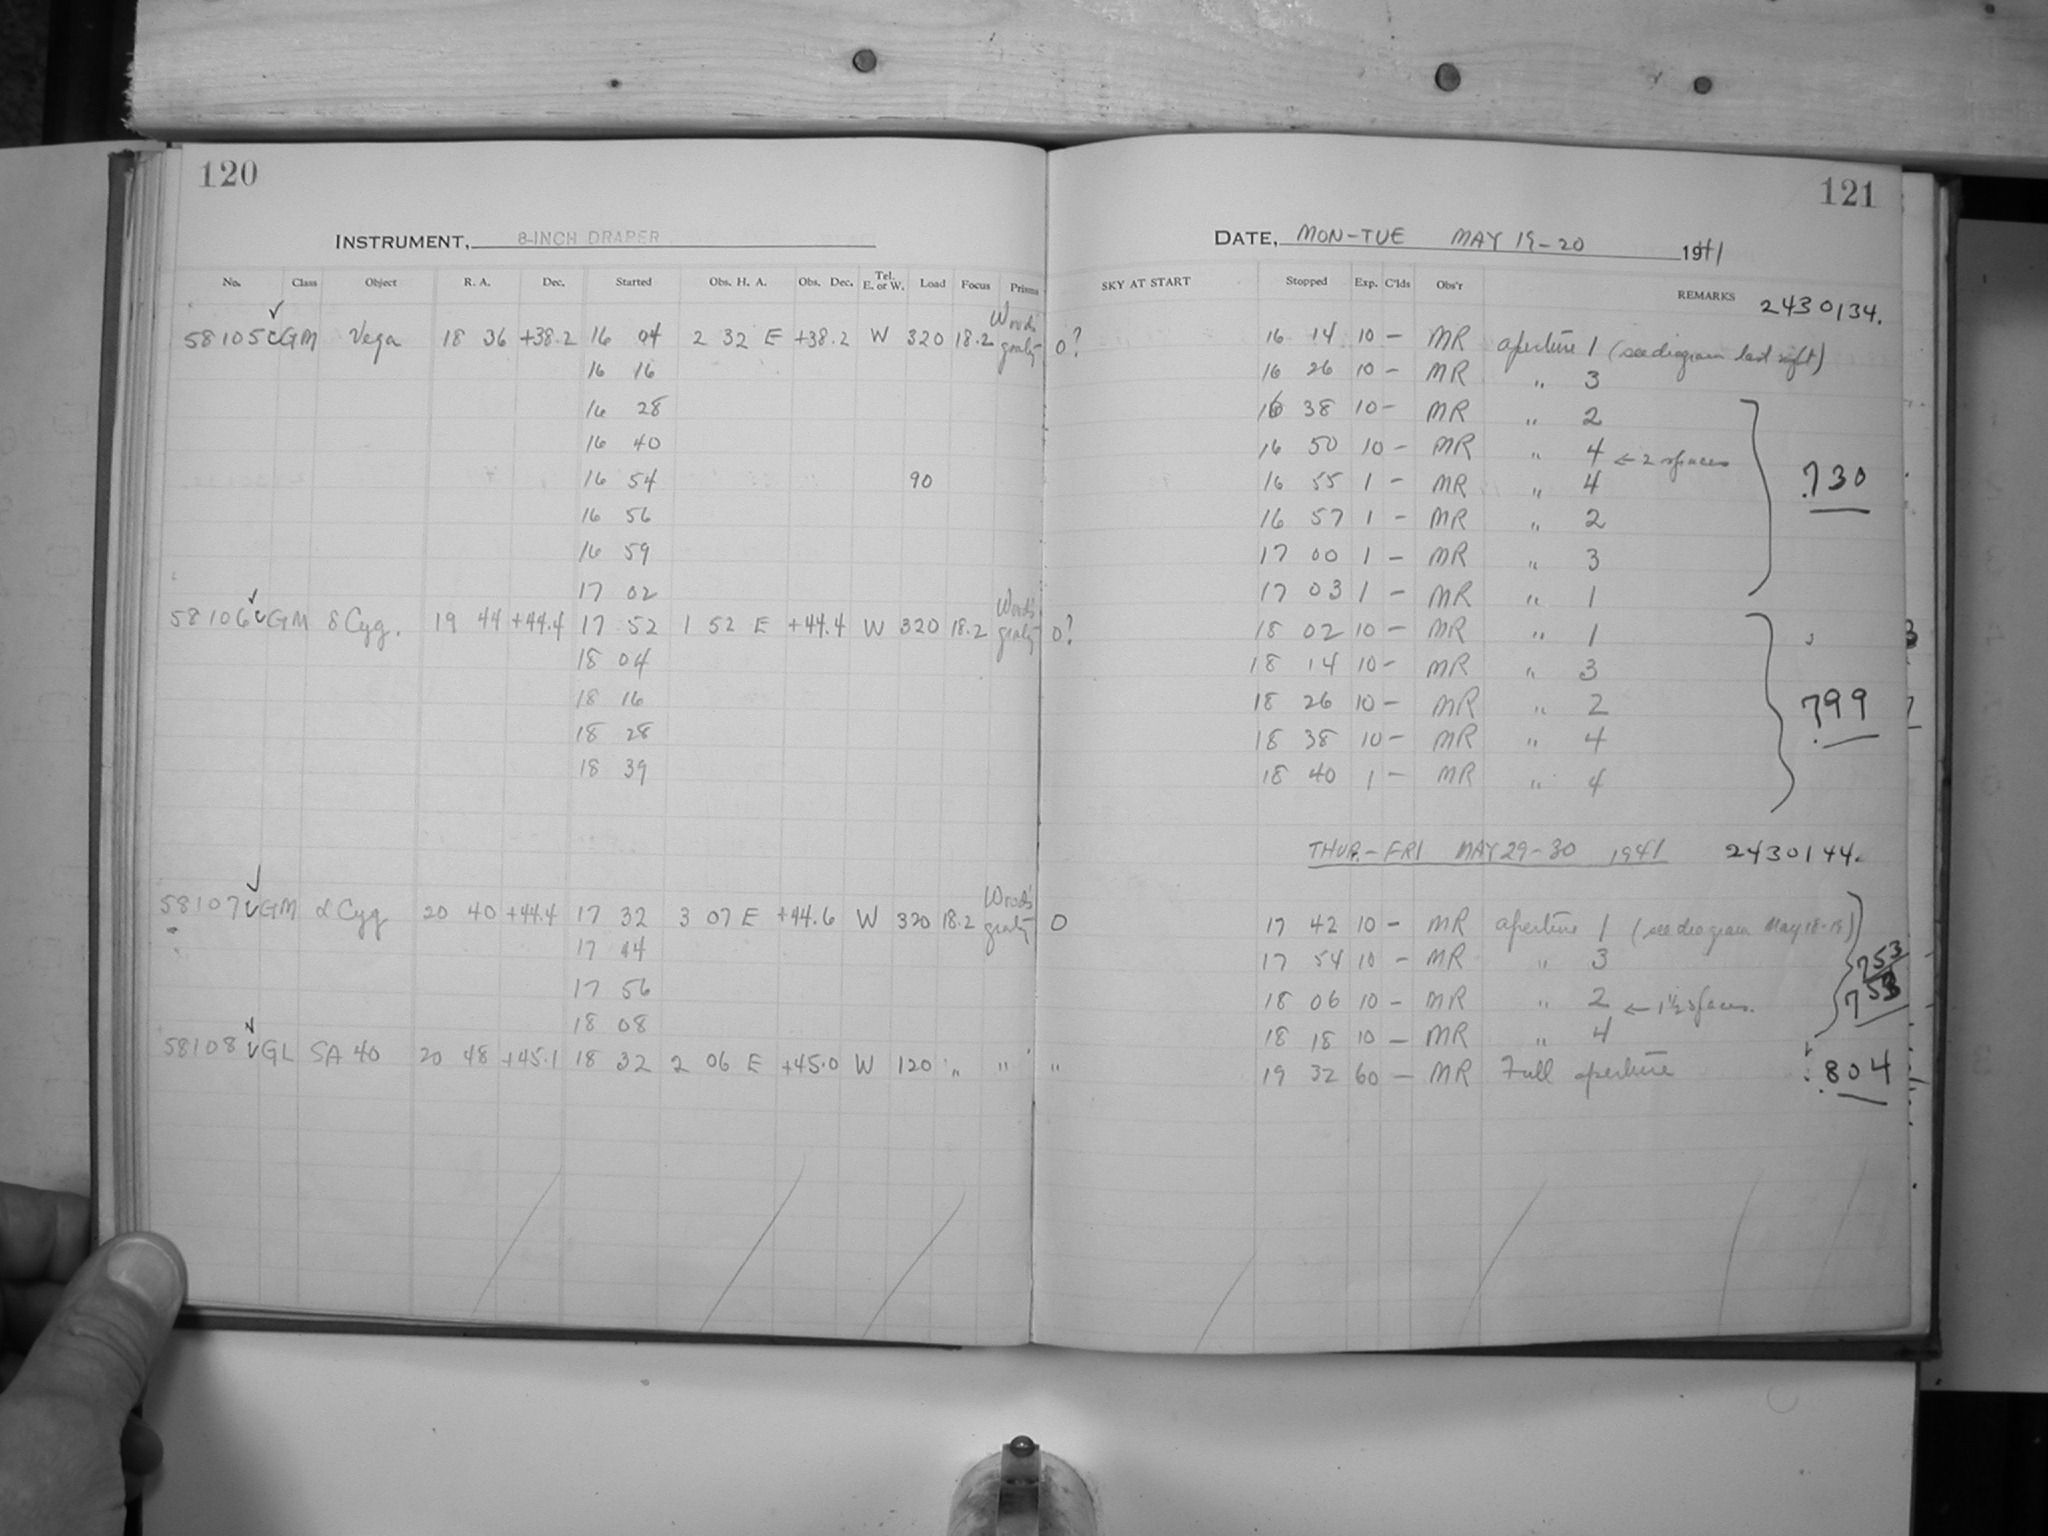 120
121
INSTRUMENT, 8-INCH DRAPER
DATE, MON-TUE MAY 19-20 1941
No. Class Object R. A. Dec. Started Obs. H. A. Obs. Dec. Tel. E. or W. Load Focus Prisms SKY AT START Stopped Exp. C'lds Obs'r REMARKS 2430134.
58105 GM Vega 18 36 +38.2 16 04 2 32 E +38.2 W 320 18.2 Woods' 0? 16 14 10 - MR aperture 1 (see diagram last night)
16 16 16 26 10 - MR " 3
16 28 16 38 10 - MR " 2
16 40 16 50 10 - MR " 4 ← 2 spaces
16 54 90 16 55 1 - MR " 4 .730
16 56 16 57 1 - MR " 2
16 59 17 00 1 - MR " 3
17 02 17 03 1 - MR " 1
58106 GM δ Cyg. 19 44 +44.4 17 52 1 52 E +44.4 W 320 18.2 Woods' 0? 18 02 10 - MR " 1
18 04 18 14 10 - MR " 3
18 16 18 26 10 - MR " 2 .799
18 28 18 38 10 - MR " 4
18 39 18 40 1 - MR " 4
THUR.-FRI MAY 29-30 1941 2430144.
58107 GM α Cyg 20 40 +44.4 17 32 3 07 E +44.6 W 320 18.2 Woods' 0 17 42 10 - MR aperture 1 (see diagram May 18-19)
17 44 17 54 10 - MR " 3 753
17 56 18 06 10 - MR " 2 ← 1½ spaces. 753
18 08 18 18 10 - MR " 4
58108 GL SA 40 20 48 +45.1 18 32 2 06 E +45.0 W 120 " " " 19 32 60 - MR Full aperture .804